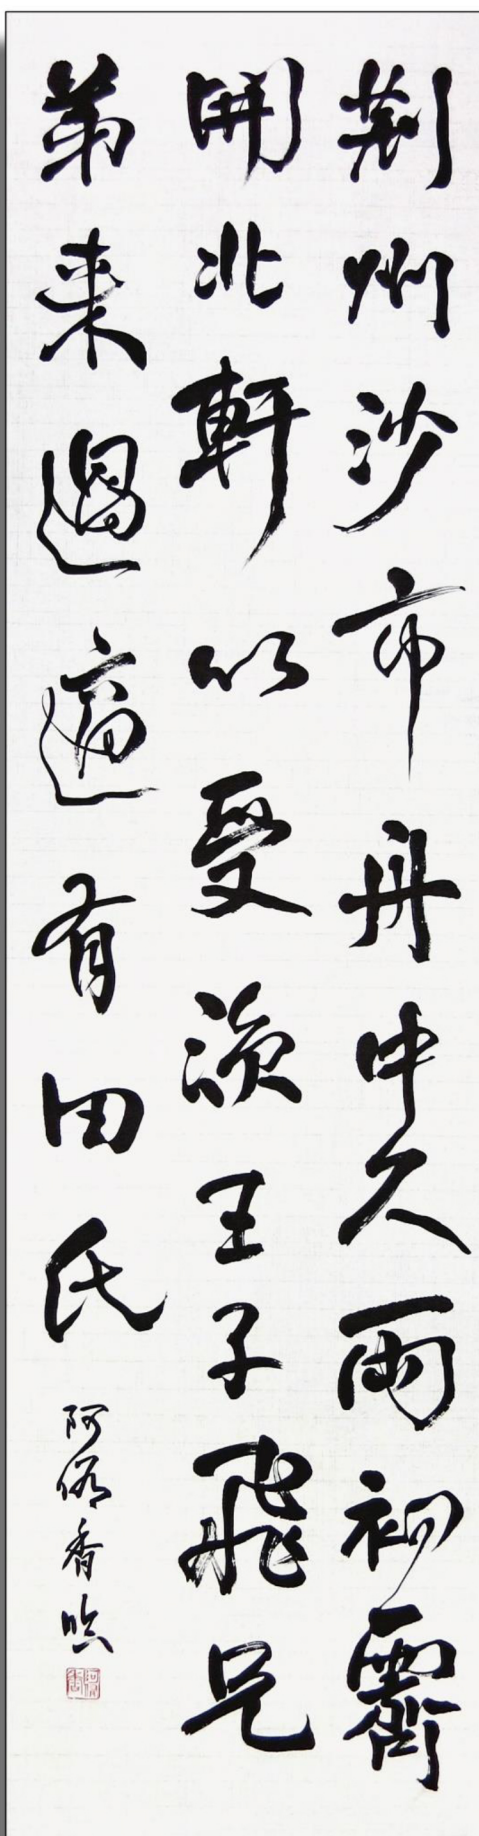 荊州沙市舟中久雨初霽
開北軒以受涼王子飛兄
弟來過適有田氏
香臨